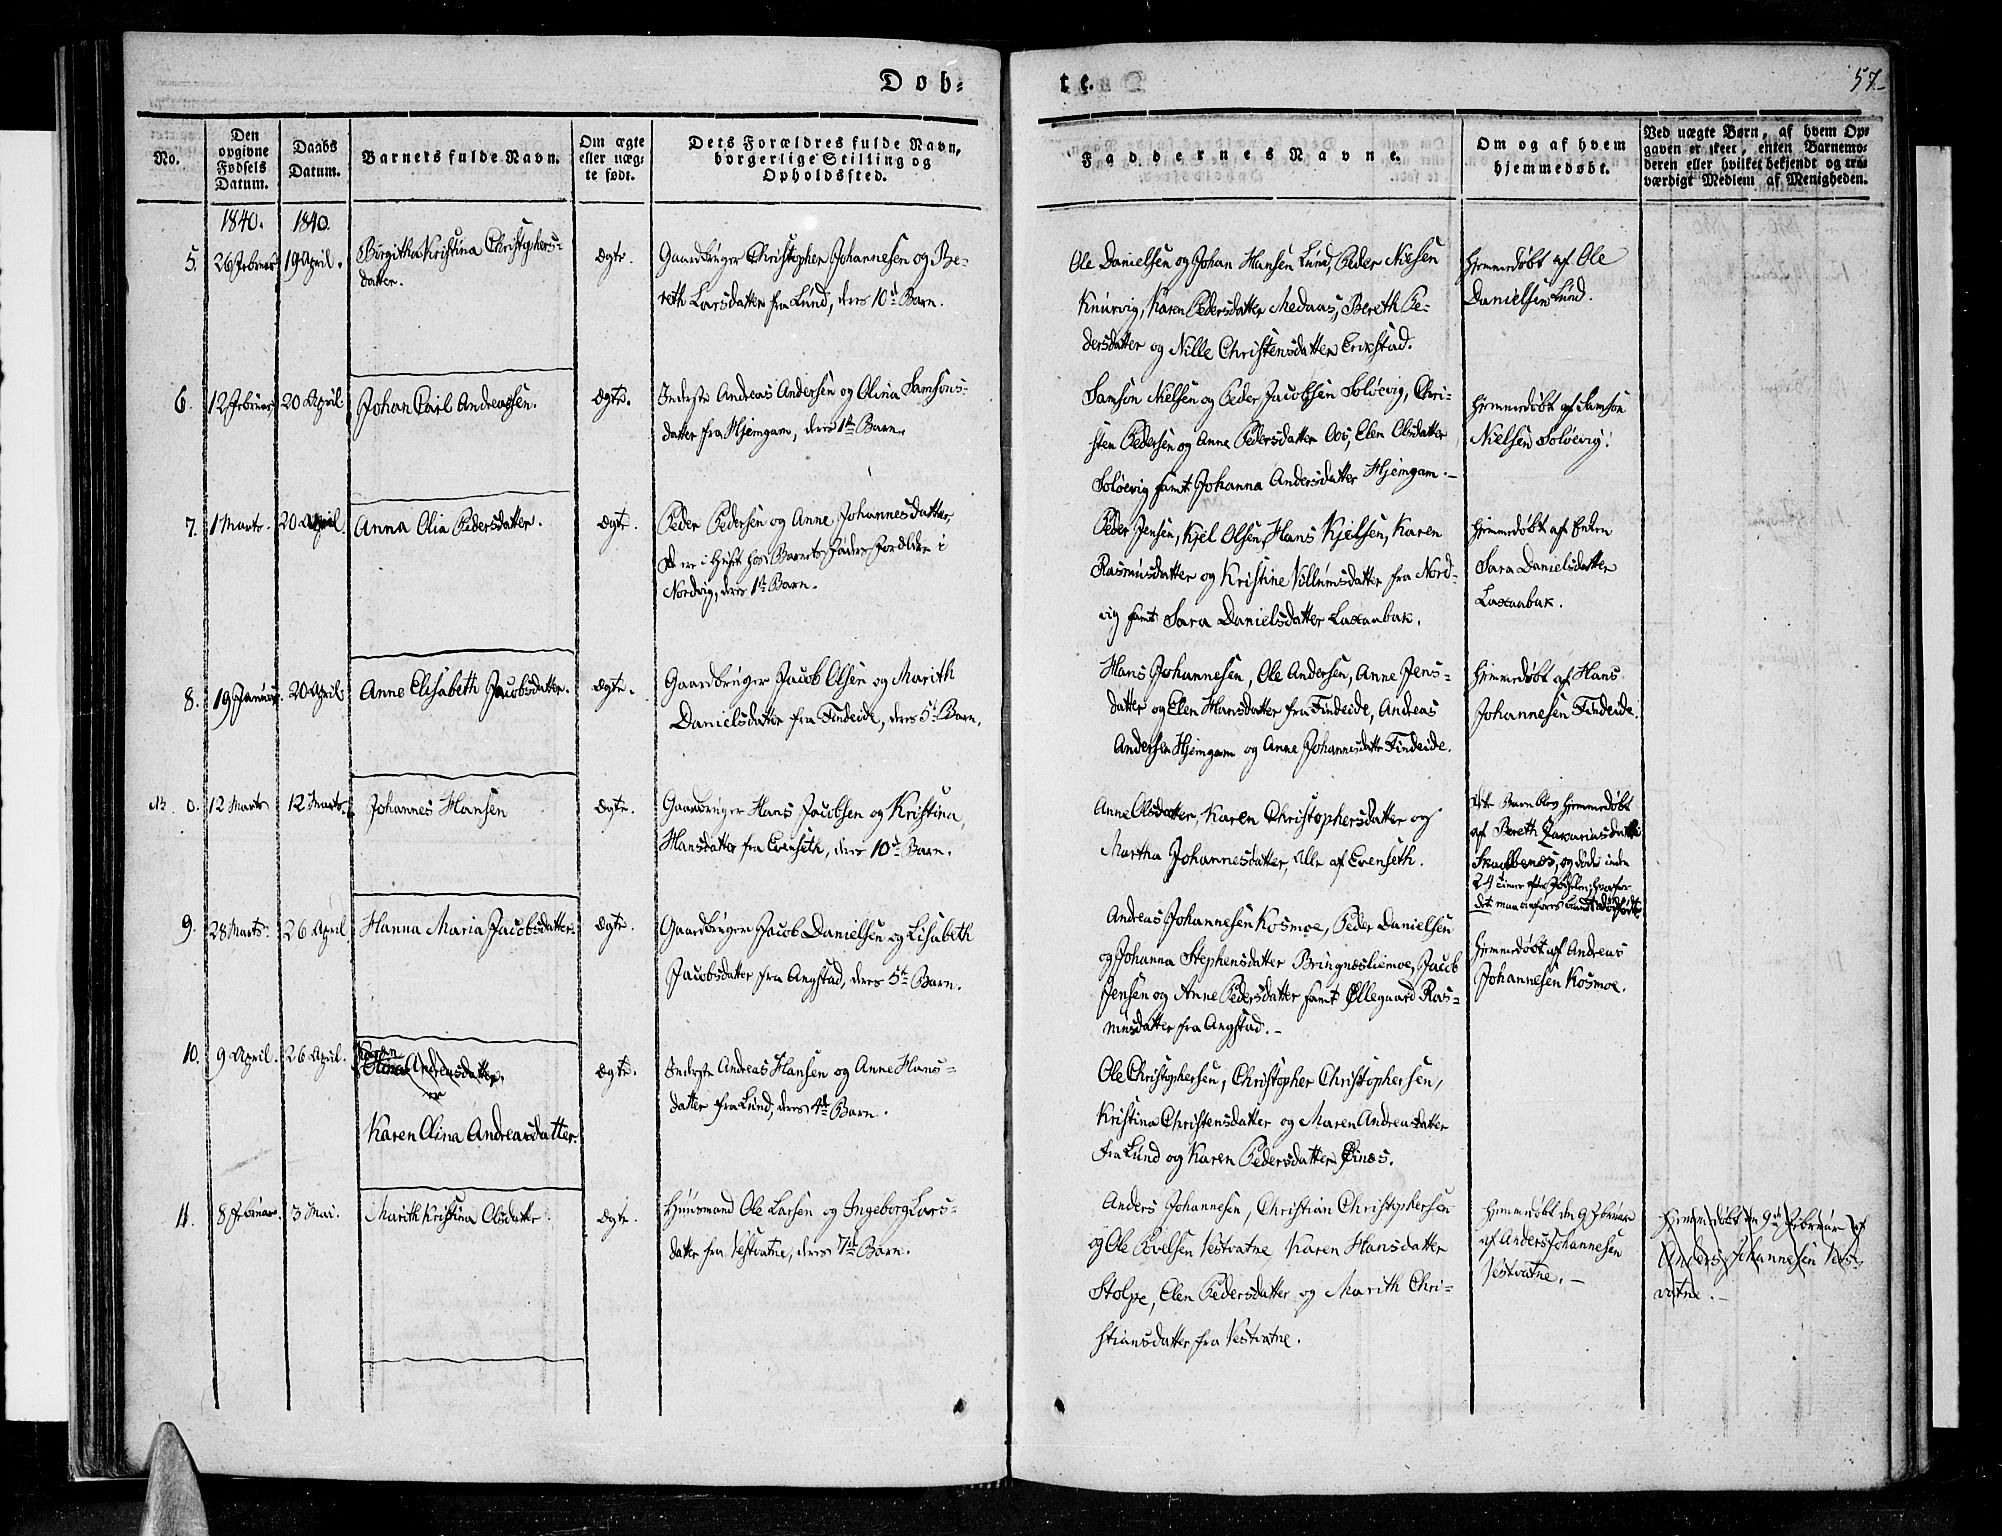 Dob-
te.
57
No.
Den
opgivne
Fødsels
Datum.
Daabs
Datum.
Barnets fulde Navn.
Om ægte
eller uæg-
te født.
Dets Forældres fulde Navn,
borgerlige Stilling og
Opholdssted.
Faddernes Navne.
Om og af hvem
hjemmedøbt.
Ved uægte Børn, af hvem Op-
gaven er skeet, enten Barnemo-
deren eller hvilket bekjendt og tro-
værdigt Medlem af Menigheden.
1840.
1840
5.
26 Februar
19 April.
Birgitha Kristina Christophers-
datter.
Ægte.
Gaardbruger Christopher Johannesen og Be-
reth Larsdatter fra Lund, deres 10d Barn.
Ole Danielsen og Johan Hansen Lund, Peder Nielsen
Knurvig, Karen Pedersdatter Medaas, Bereth Pe-
dersdatter og Nille Christensdatter Erikstad.
Hjemmedøbt af Ole
Danielsen Lund.
6.
12 Februar
20 April
Johan Carl Andreassen.
Ægte.
Inderste Andreas Andersen og Olina Samsons-
datter fra Hjemgam, deres 1te Barn.
Samson Nielsen og Peder Jacobsen Soløevig, Chri-
sten Pedersen og Anne Pedersdatter Oos, Elen Olsdatter
Soløevig samt Johanna Andersdatter Hjemgam.-
Hjemmedøbt af Samson
Nielsen Soløevig.
7.
1 Marts.
20 April.
Anna Olia Pedersdatter.
Ægte.
Peder Pedersen og Anne Johannesdatter,
er i Huset hos Barnets Faders Forældre i
Nordvig, deres 1te Barn.
Peder Jensen, Kjel Olsen, Hans Kjelsen, Karen
Rasmusdatter og Kristine Villumsdatter fra Nord-
vig samt Sara Danielsdatter Laxaabak.
Hjemmedøbt af Enken
Sara Danielsdatter
Laxaabak.
8.
19 Januar.
20 April
Anne Elisabeth Jacobsdatter.
Ægte.
Gaardbruger Jacob Olsen og Marith
Danielsdatter fra Findeide, deres 5te Barn.
Hans Johannesen, Ole Andersen, Anne Jens-
datter og Elen Hansdatter fra Findeide, Andreas
Andersen Hjemgam og Anne Johannisdatter Findeide.
Hjemmedøbt af Hans
Johannesen Findeide.
0.
12 Marts
12 Marts.
Johannes Hansen
Ægte.
Gaardbruger Hans Jacobsen og Kristina
Hansdatter fra Evenseth, deres 10d Barn.
Anne Olsdatter, Karen Christophersdatter og
Martha Johannesdatter, alle af Evenseth.
Dette Barn blev hjemmedøbt
af Bereth Zakariasdatter
Skaubenæs, og døde inden
24 Timer efter Fødselen; hvorfor
det maa anføres blandt dødfødte.
9.
28 Marts.
26 April.
Hanna Maria Jacobsdatter.
Ægte.
Gaardbruger Jacob Danielsen og Lisabeth
Jacobsdatter fra Angstad, deres 5te Barn.
Andreas Johannesen Kosmoe, Peder Danielsen
og Johanna Stephensdatter Bringnesliemoe, Jacob
Jensen og Anne Pedersdatter samt Ollegaard Ras-
musdatter fra Angstad.-
Hjemmedøbt af Andreas
Johannesen Kosmoe.
10.
9 April.
26 April.
Karen
Olina Andreasdatter.
Karen Olina Andreasdatter.
Ægte.
Inderste Andreas Hansen og Anne Hans-
datter fra Lund, deres 4de Barn.
Ole Christophersen, Christopher Christophersen,
Kristina Christensdatter og Maren Andreasdatter
fra Lund og Karen Pedersdatter Finæs.
11.
8 Februar.
3 Mai.
Marith Kristina Olsdatter.
Ægte.
Huusmand Ole Larsen og Ingeborg Lars-
datter fra Vestvatne, deres 7de Barn.
Anders Johannesen, Christian Christophersen
og Ole Povelsen Vestvatne Karen Hansdatter
Stolpe, Elen Pedersdatter og Marith Chri-
stiansdatter fra Vestvatne.
Hjemmedøbt den 9 Februar
af Anders Johannesen
Vestvatne.-
Hjemmedøbt den 9de Februar af
Anders Johannesen Vest-
vatne.-